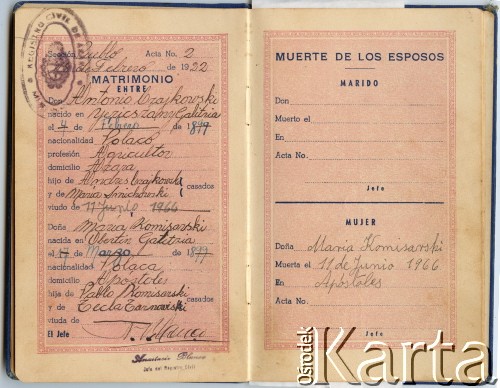 Sección Acta No. 2
Febrero de 1922
MATRIMONIO
ENTRE
Don Antonio Czajkowski
nacido en Galitzia
el 4 Febrero 1897
nacionalidad Polaco
profesión Agricultor
domicilio Azara
hijo de Andrés Czajkowski
y de María casados
viudo de 11 Junio 1966
Doña María Komisarski
nacida en Obertin Galitzia
el 17 Marzo 1899
nacionalidad Polaca
domicilio Apóstoles
hija de Pablo Komisarski
y de Tecla Tarnavski casados
viuda de
El Jefe
Anastasio Blanco
Jefe del Registro Civil
MUERTE DE LOS ESPOSOS
MARIDO
Don
Muerto el
En
Acta No.
Jefe
MUJER
Doña María Komisarski
Muerta el 11 de Junio 1966
En Apóstoles
Acta No.
Jefe
Ośrodek
Karta